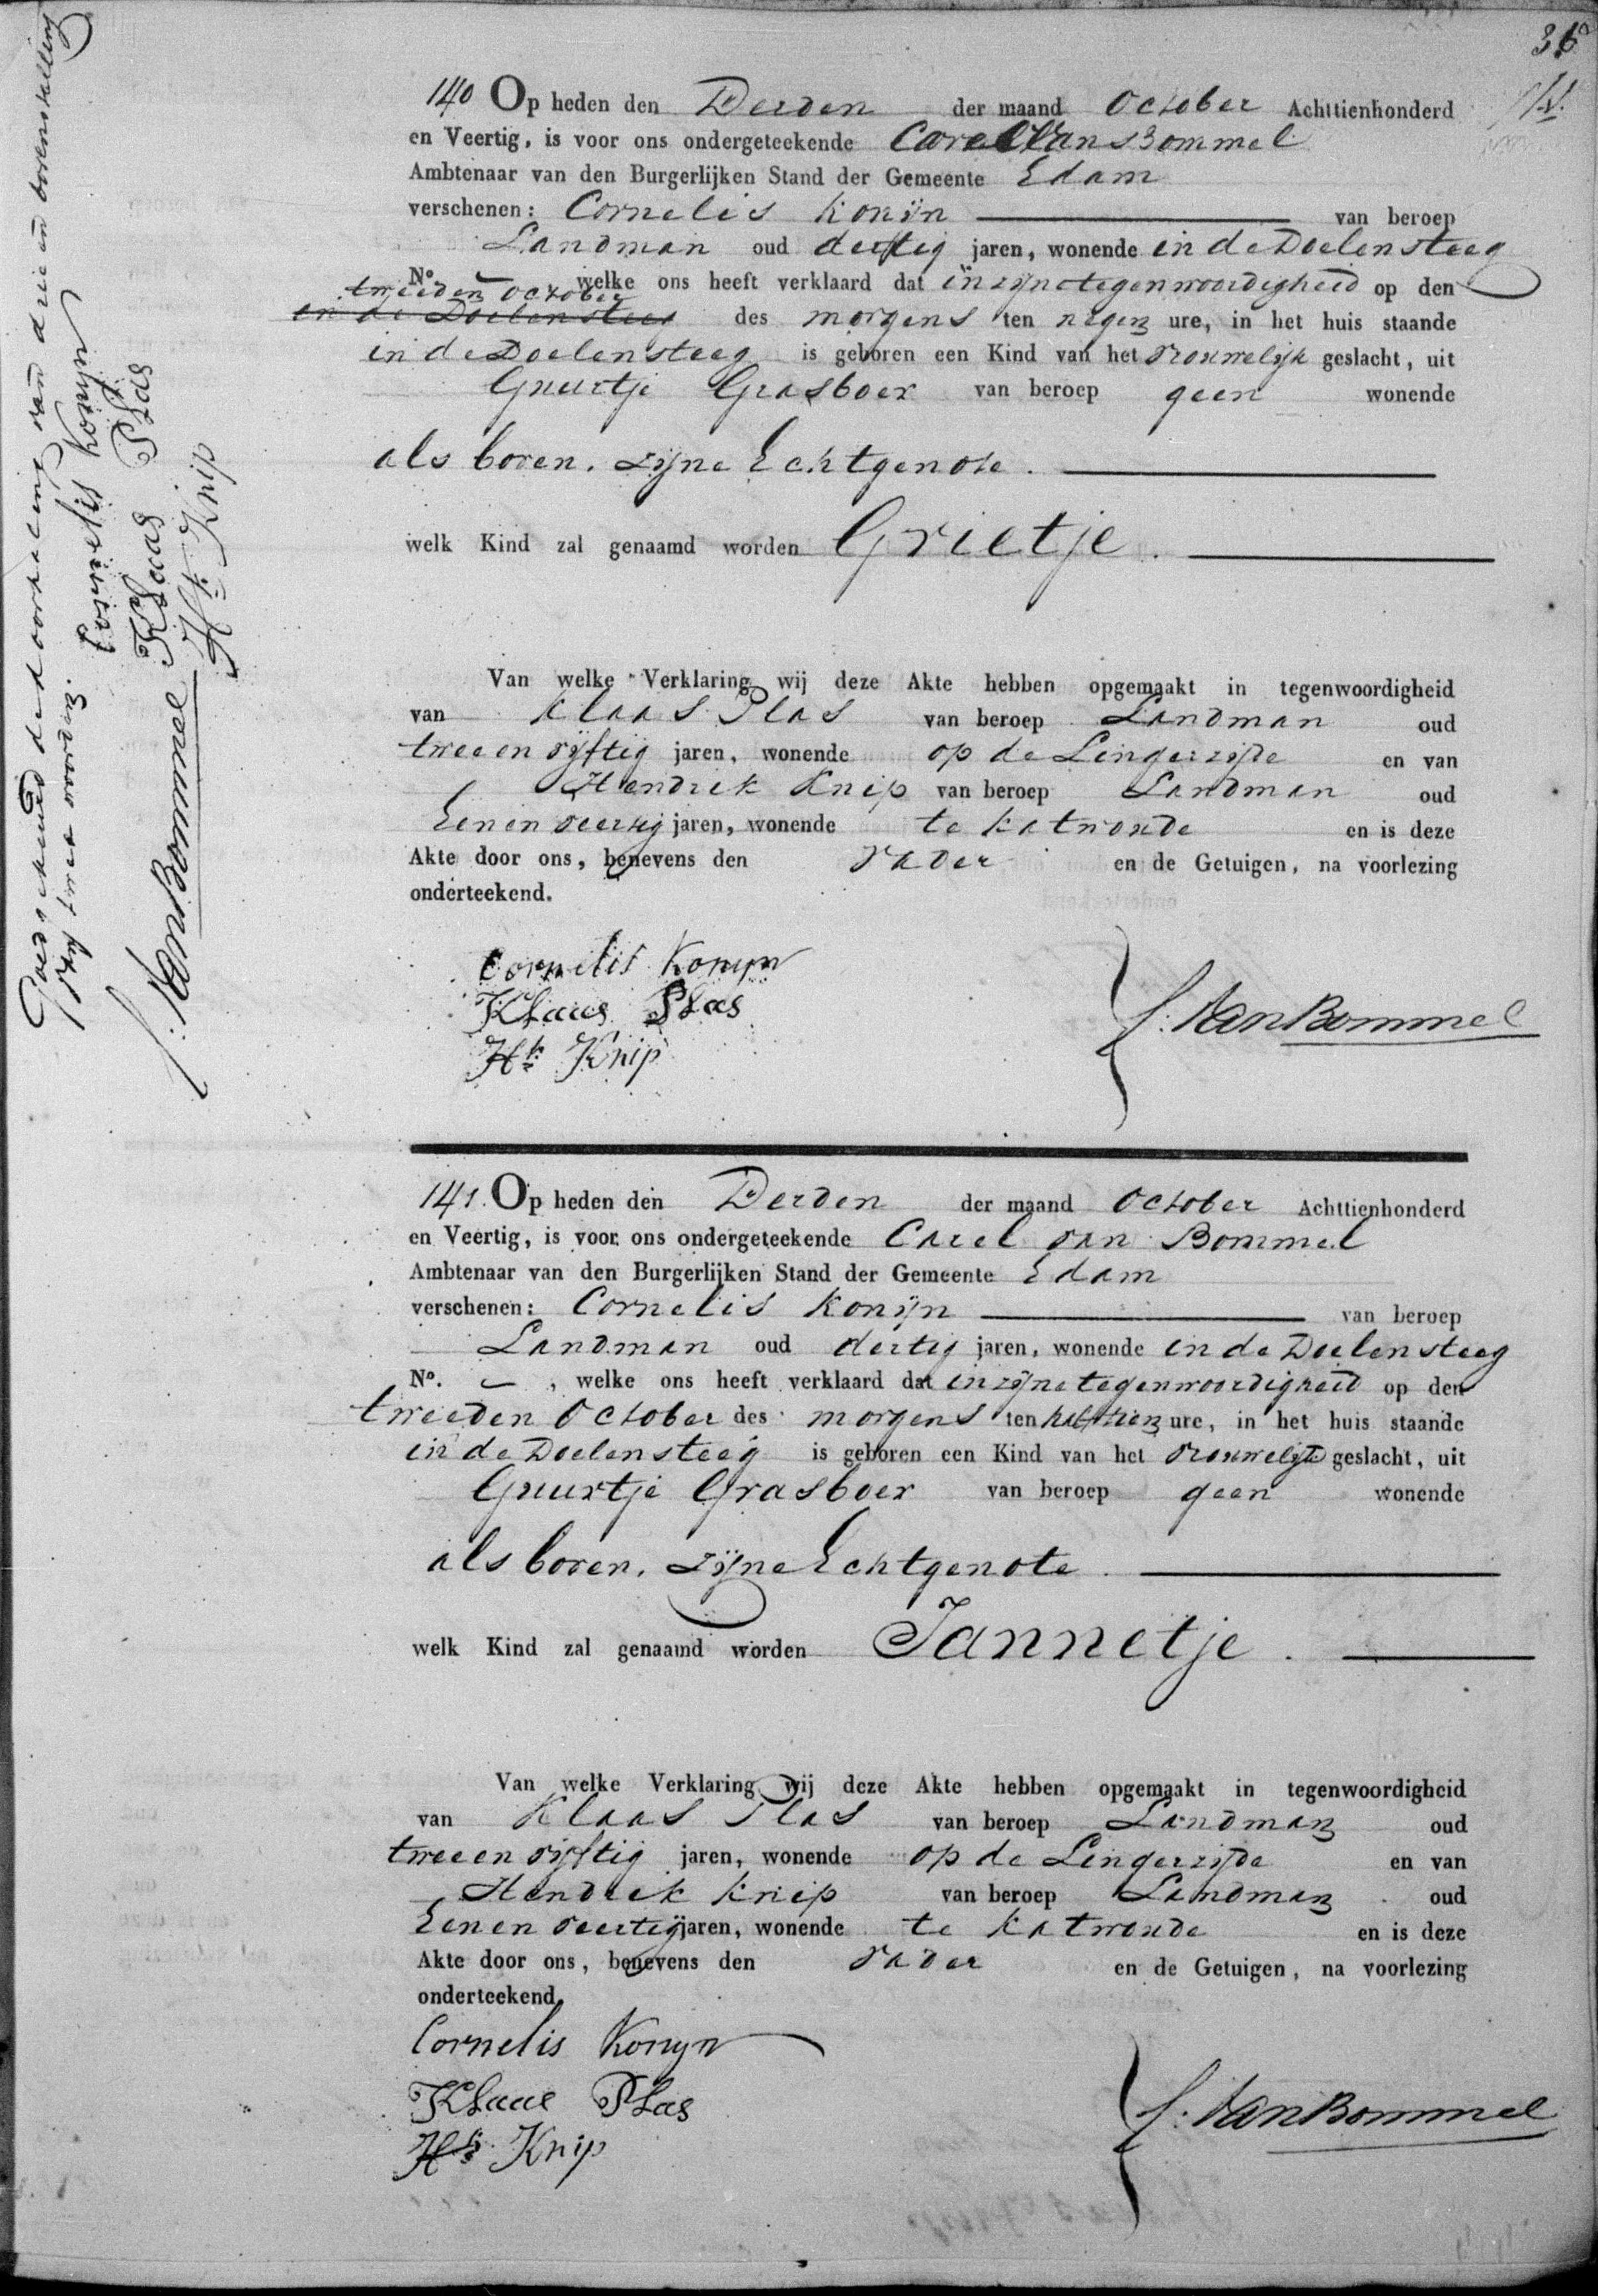 36
140 Op heden den Derden der maand October Achttienhonderd
en Veertig, is voor ons ondergeteekende Carel Van Bommel
Ambtenaar van den Burgerlijken Stand der Gemeente Edam
verschenen: Cornelis Konijn van beroep
Landman oud dertig jaren, wonende in de Doelensteeg
No. — welke ons heeft verklaard dat in zijne tegenwoordigheid op den
tweeden October
in de Doelensteeg des morgens ten negen ure, in het huis staande
in de Doelensteeg is geboren een Kind van het vrouwelijk geslacht, uit
Guurtje Grasboer van beroep geen wonende
als boven. zijne Echtgenote.
welk Kind zal genaamd worden Grietje.
Van welke Verklaring wij deze Akte hebben opgemaakt in tegenwoordigheid
van Klaas Plas van beroep Landman oud
twee en vijftig jaren, wonende op de Lingerzijde en van
Hendrik Knip van beroep Landman oud
Een en veertig jaren, wonende te Katwoude en is deze
Akte door ons, benevens den vader en de Getuigen, na voorlezing
onderteekend.
Cornelis Konijn
Klaas Plas
Hk Knip
C. Van Bommel
Goedgekeurd de doorhaling van drie en bovenstelling
van twee woorden.
Cornelis Konijn
Klaas Plas
Hk Knip
C. Van Bommel
141. Op heden den Derden der maand October Achttienhonderd
en Veertig, is voor ons ondergeteekende Carel van Bommel
Ambtenaar van den Burgerlijken Stand der Gemeente Edam
verschenen: Cornelis Konijn van beroep
Landman oud dertig jaren, wonende in de Doelensteeg
No. —, welke ons heeft verklaard dat in zijne tegenwoordigheid op den
tweeden October des morgens ten half tien ure, in het huis staande
in de Doelensteeg is geboren een Kind van het vrouwelijk geslacht, uit
Guurtje Grasboer van beroep geen wonende
als boven. zijne Echtgenote.
welk Kind zal genaamd worden Jannetje.
Van welke Verklaring wij deze Akte hebben opgemaakt in tegenwoordigheid
van Klaas Plas van beroep Landman oud
twee en vijftig jaren, wonende op de Lingerzijde en van
Hendrik Knip van beroep Landman oud
Een en veertig jaren, wonende te Katwoude en is deze
Akte door ons, benevens den vader en de Getuigen, na voorlezing
onderteekend.
Cornelis Konijn
Klaas Plas
Hk Knip
C. Van Bommel